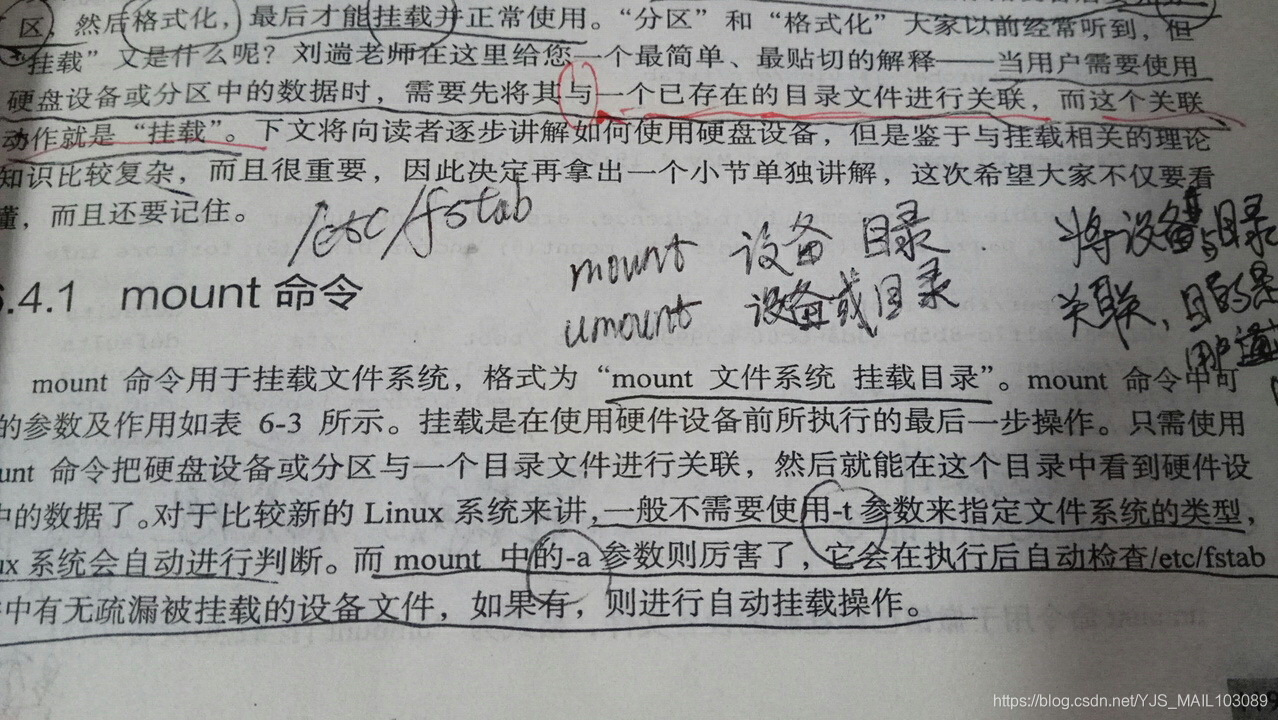 区，然后格式化，最后才能挂载并正常使用。“分区”和“格式化”大家以前经常听到，但
“挂载”又是什么呢？刘遄老师在这里给您一个最简单、最贴切的解释——当用户需要使用
硬盘设备或分区中的数据时，需要先将其与一个已存在的目录文件进行关联，而这个关联
动作就是“挂载”。下文将向读者逐步讲解如何使用硬盘设备，但是鉴于与挂载相关的理论
知识比较复杂，而且很重要，因此决定再拿出一个小节单独讲解，这次希望大家不仅要看
懂，而且还要记住。
/etc/fstab
mount 设备 目录
umount 设备或目录
将设备与目录
关联，目的是
用户
.4.1 mount 命令
mount 命令用于挂载文件系统，格式为“mount 文件系统 挂载目录”。mount 命令中可
的参数及作用如表 6-3 所示。挂载是在使用硬件设备前所执行的最后一步操作。只需使用
unt 命令把硬盘设备或分区与一个目录文件进行关联，然后就能在这个目录中看到硬件设
中的数据了。对于比较新的 Linux 系统来讲，一般不需要使用-t 参数来指定文件系统的类型，
ux 系统会自动进行判断。而 mount 中的-a 参数则厉害了，它会在执行后自动检查/etc/fstab
中有无疏漏被挂载的设备文件，如果有，则进行自动挂载操作。
https://blog.csdn.net/YJS_MAIL103089